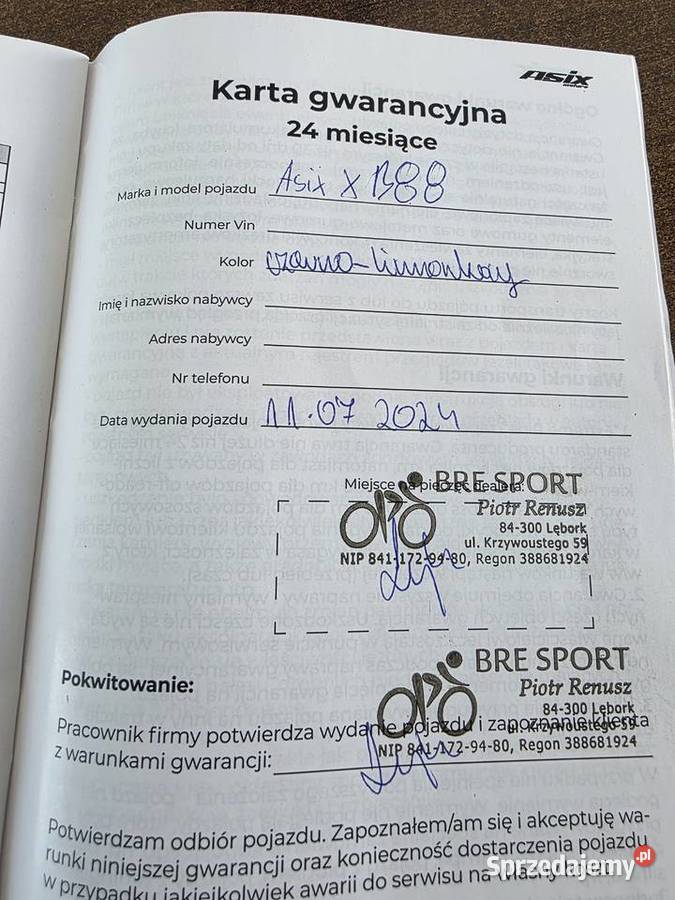 Asix
Karta gwarancyjna
24 miesiące
Marka i model pojazdu Asix X B88
Numer Vin
Kolor czarno-limonkowy
Imię i nazwisko nabywcy
Adres nabywcy
Nr telefonu
Data wydania pojazdu 11.07 2024
Miejsce na pieczęć dealera:
BRE SPORT
Piotr Renusz
84-300 Lębork
ul. Krzywoustego 59
NIP 841-172-94-80, Regon 388681924
BRE SPORT
Piotr Renusz
84-300 Lębork
ul. Krzywoustego 59
NIP 841-172-94-80, Regon 388681924
Pokwitowanie:
Pracownik firmy potwierdza wydanie pojazdu i zapoznanie klienta
z warunkami gwarancji:
Potwierdzam odbiór pojazdu. Zapoznałem/am się i akceptuję wa-
runki niniejszej gwarancji oraz konieczność dostarczenia pojazdu
w przypadku jakiejkolwiek awarii do serwisu na własny
Sprzedajemy.pl